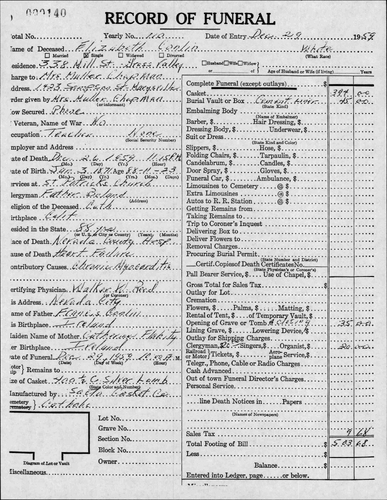 009140
RECORD OF FUNERAL
Total No. Yearly No. 110 Date of Entry Dec 29 1959
Name of Deceased Elizabeth Conlin White
Married Single Widowed Divorced
Residence 338 Mill St. Grass Valley
Charge to Mrs Muller Chapman
Address 1425 St. Marysville
Order given by Mrs. Muller Chapman
How Secured Phone
Veteran, Name of War No
Occupation Teacher None
(Social Security Number)
Employer and Address
Date of Death Dec. 26 1959 11:15
Date of Birth Jan. 3 1871 88-11-23
Services at St. Patricks Church
Clergyman Father
Religion of the Deceased Cath
Birthplace Calif
Resided in the State 88 yrs
Place of Death Nevada County Hosp
Cause of Death Heart Failure
Contributory Causes Chronic Myocarditis
Certifying Physician Walter W. Reed
His Address Nevada City
Name of Father Francis Conlin
His Birthplace Ireland
Maiden Name of Mother Catherine
Her Birthplace Ireland
Date of Funeral Dec 29 1959 A.M.
Remains to
Size of Casket Silver Lamb
Manufactured by Sacto Casket Co
Cemetery Catholic
Lot No.
Grave No.
Section No.
Block No.
Owner
Diagram of Lot or Vault
Miscellaneous
Age of Husband or Wife (if living) Years
Complete Funeral (except outlays)
Casket 394 00
Burial Vault or Box Cement 45 00
(State Kind)
Embalming Body
Barber, Hair Dressing,
Dressing Body, Underwear,
Suit or Dress
(State Kind and Color)
Slippers, Hose,
Folding Chairs, Tarpaulin,
Candelabrum, Candles,
Door Spray, Gloves,
Funeral Car, Ambulance,
Limousines to Cemetery @ $
Extra Limousines @ $
Autos to R. R. Station @ $
Getting Remains from
Taking Remains to
Trip to Coroner's Inquest
Delivering Box to
Deliver Flowers to
Removal Charges
Procuring Burial Permit
(State Number and District)
Certif. Copies of Death Certificates No.
Pall Bearer Service, Use of Chapel,
Gross Total for Sales Tax
Outlay for Lot
Cremation
Flowers, Palms, Matting,
Rental of Tent, of Temporary Vault,
Opening of Grave or Tomb 35 00
Lining Grave, Lowering Device,
Outlay for Shipping Charges
Clergyman, 20 Singers, Organist, 20 00
Railroad or Motor Tickets, Aeroplane Service,
Telegr., Phone, Cable or Radio Charges
Cash Advanced
Out of town Funeral Director's Charges
Personal Service
line Death Notices in Papers
(Names of Newspapers)
Sales Tax
Total Footing of Bill
Less
Balance
Entered into Ledger, page or below.